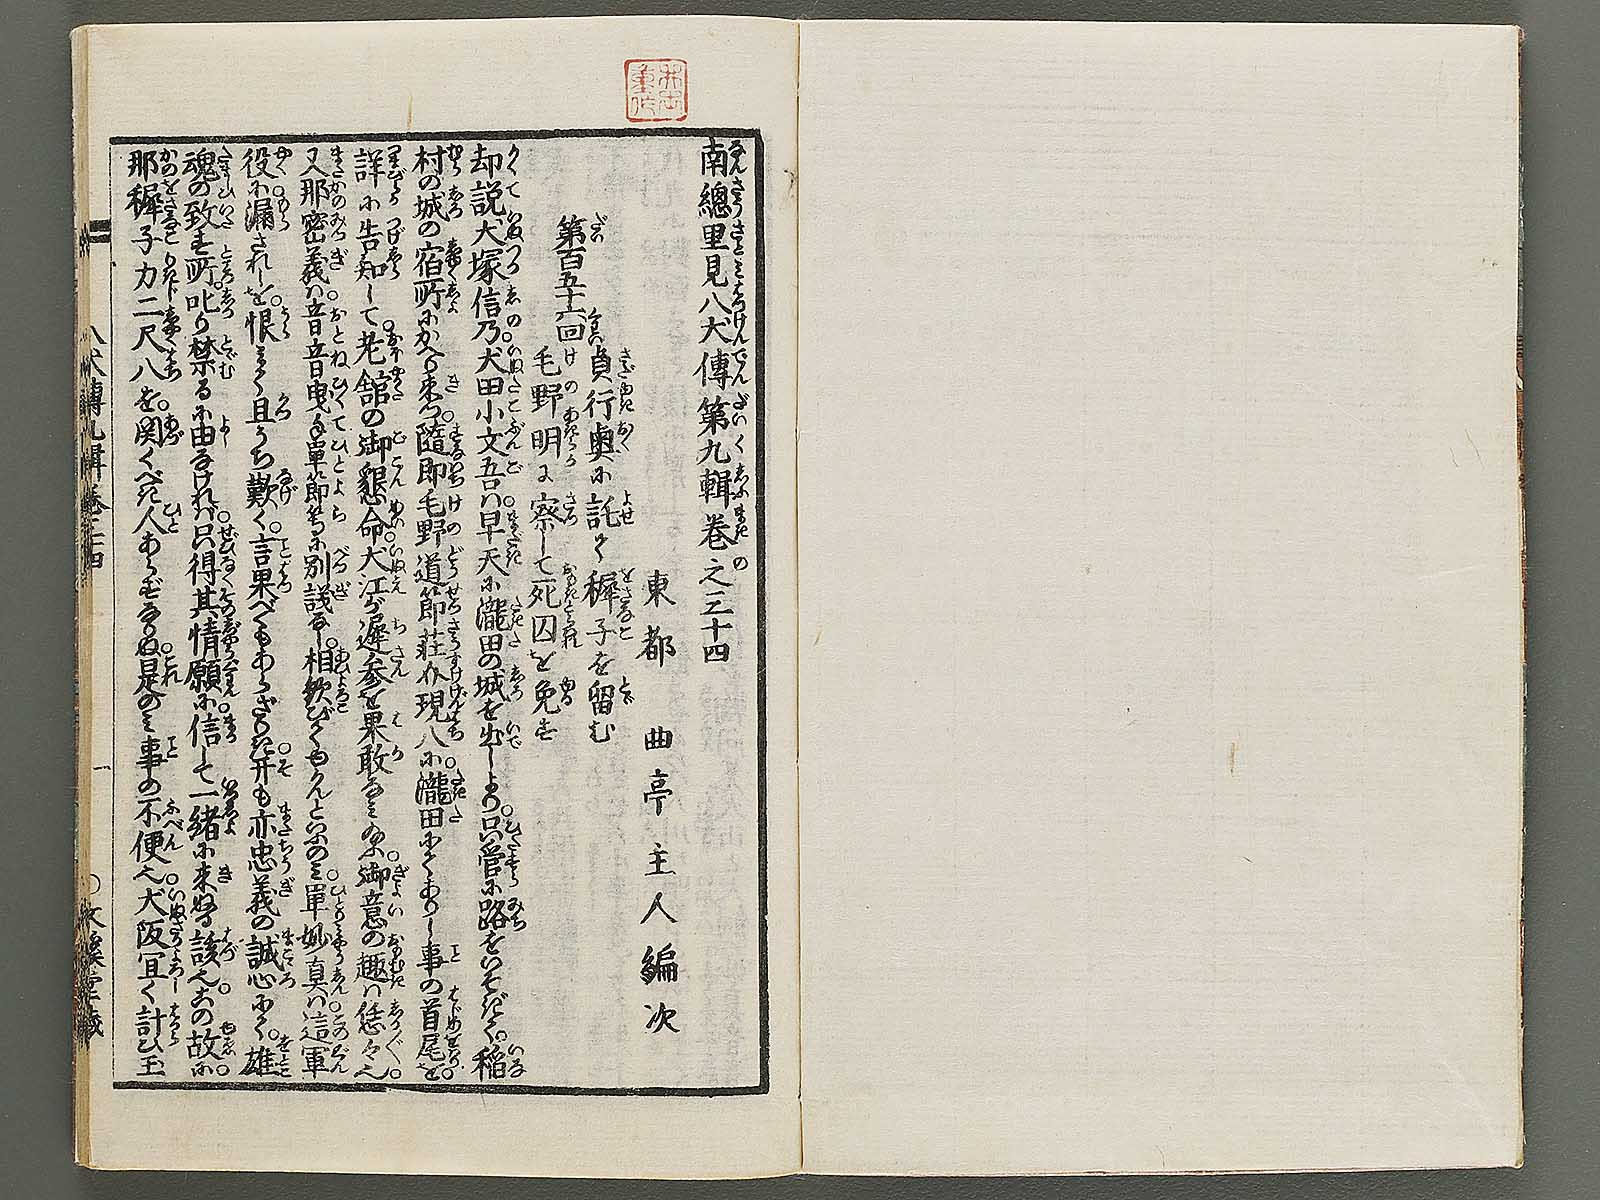 南總里見八犬傳第九輯卷之三十四
東都 曲亭主人編次
第百五十六回
貞行輿に託て穉子を留む
毛野明に察して死囚を免す
却説犬塚信乃犬田小文吾は早天に瀧田の城を出しより只管に路をいそぎて稲
村の城の宿所にかへり来つ隨即毛野道節荘介現八に瀧田にてありし事の首尾を
詳に告知して老舘の御懇命犬江が遲参を果敢なみ給ふ御意の趣は恁々と
又那密義は音音曳手單節等に別議なし相歓びてもろんといふのみ單妙真は這軍
役に漏されしを恨み且うち歎く言果べくもあらざりき并も亦忠義の誠心にて雄
魂の致す所叱り禁るに由なければ只得其情願に信して一緒に来ぬる該也この故に
那穉子力二尺八を関くべき人あらずなりぬ是のみ事の不便也犬阪宜く計ひ玉
八犬傳九輯卷三十四
一
文溪堂藏